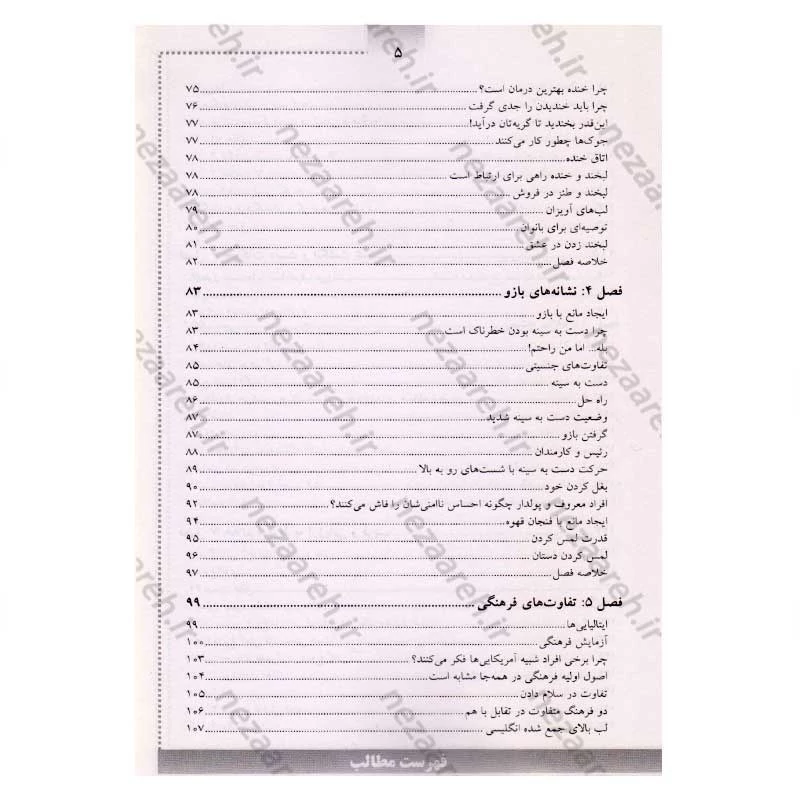 ۵
چرا خنده بهترین درمان است؟ ۷۵
چرا باید خندیدن را جدی گرفت ۷۶
این‌قدر بخندید تا گریه‌تان درآید! ۷۷
جوک‌ها چطور کار می‌کنند ۷۷
اتاق خنده ۷۸
لبخند و خنده راهی برای ارتباط است ۷۸
لبخند و طنز در فروش ۷۸
لب‌های آویزان ۷۹
توصیه‌ای برای بانوان ۸۰
لبخند زدن در عشق ۸۱
خلاصه فصل ۸۲
فصل ۴: نشانه‌های بازو ۸۳
ایجاد مانع با بازو ۸۳
چرا دست به سینه بودن خطرناک است ۸۳
بله... اما من راحتم! ۸۴
تفاوت‌های جنسیتی ۸۵
دست به سینه ۸۵
راه حل ۸۶
وضعیت دست به سینه شدید ۸۷
گرفتن بازو ۸۷
رئیس و کارمندان ۸۸
حرکت دست به سینه با شست‌های رو به بالا ۸۹
بغل کردن خود ۹۰
افراد معروف و پولدار چگونه احساس ناامنی‌شان را فاش می‌کنند؟ ۹۲
ایجاد مانع با فنجان قهوه ۹۴
قدرت لمس کردن ۹۵
لمس کردن دستان ۹۶
خلاصه فصل ۹۷
فصل ۵: تفاوت‌های فرهنگی ۹۹
ایتالیایی‌ها ۹۹
آزمایش فرهنگی ۱۰۰
چرا برخی افراد شبیه آمریکایی‌ها فکر می‌کنند؟ ۱۰۳
اصول اولیه فرهنگی در همه‌جا مشابه است ۱۰۴
تفاوت در سلام دادن ۱۰۵
دو فرهنگ متفاوت در تقابل با هم ۱۰۶
لب بالای جمع شده انگلیسی ۱۰۷
فهرست مطالب
nezaareh.ir